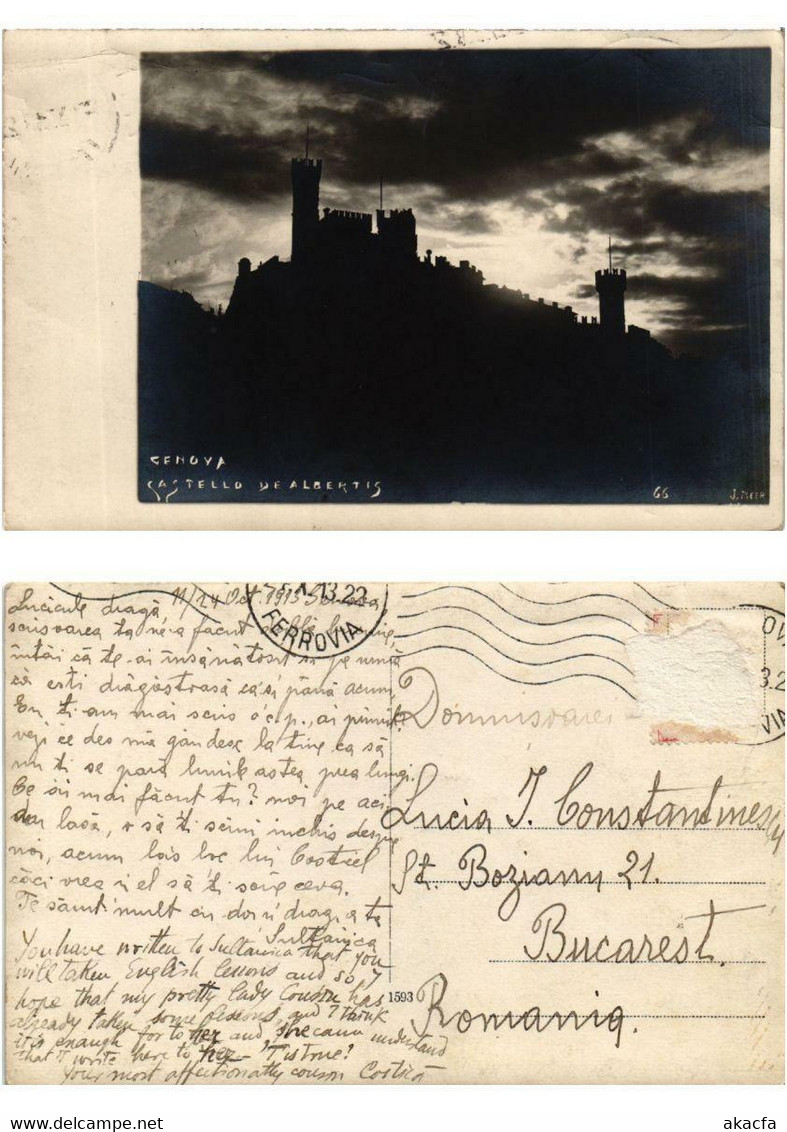 GENOVA
CASTELLO DE ALBERTIS
66
J. NEER
Lucicule dragă 11/24 Oct. 1913 Genova
FERROVIA
13.22
scrisoarea ta ne-a făcut
întâi că te-ai însănătosit și pe urmă
că ești drăgăstoasă ca și până acum
Eu ți-am mai scris o c.p., ai primit?
vezi ce des mă gândesc la tine ca să
nu ți se pară lunile astea prea lungi.
Ce ai mai făcut tu? noi pe aci
lasă, o să ți scriu închis despre
noi, acum las loc lui Costicel
căci vrea și el să ți scrie ceva.
Te sărut mult cu dor și drag a ta
Sultanica
You have written to Sultanica that you
will taken English lessons and so, I
hope that my pretty lady Couson has
already taken some lessons and I think
it is enough for to her and she can understand
that I write here to her - 'T is true?
Your most affectionatly couson Costică
1593
Domnișoarei
Lucia I. Constantinescu
St. Bozianu 21.
Bucarest.
Romania.
www.delcampe.net
akacfa